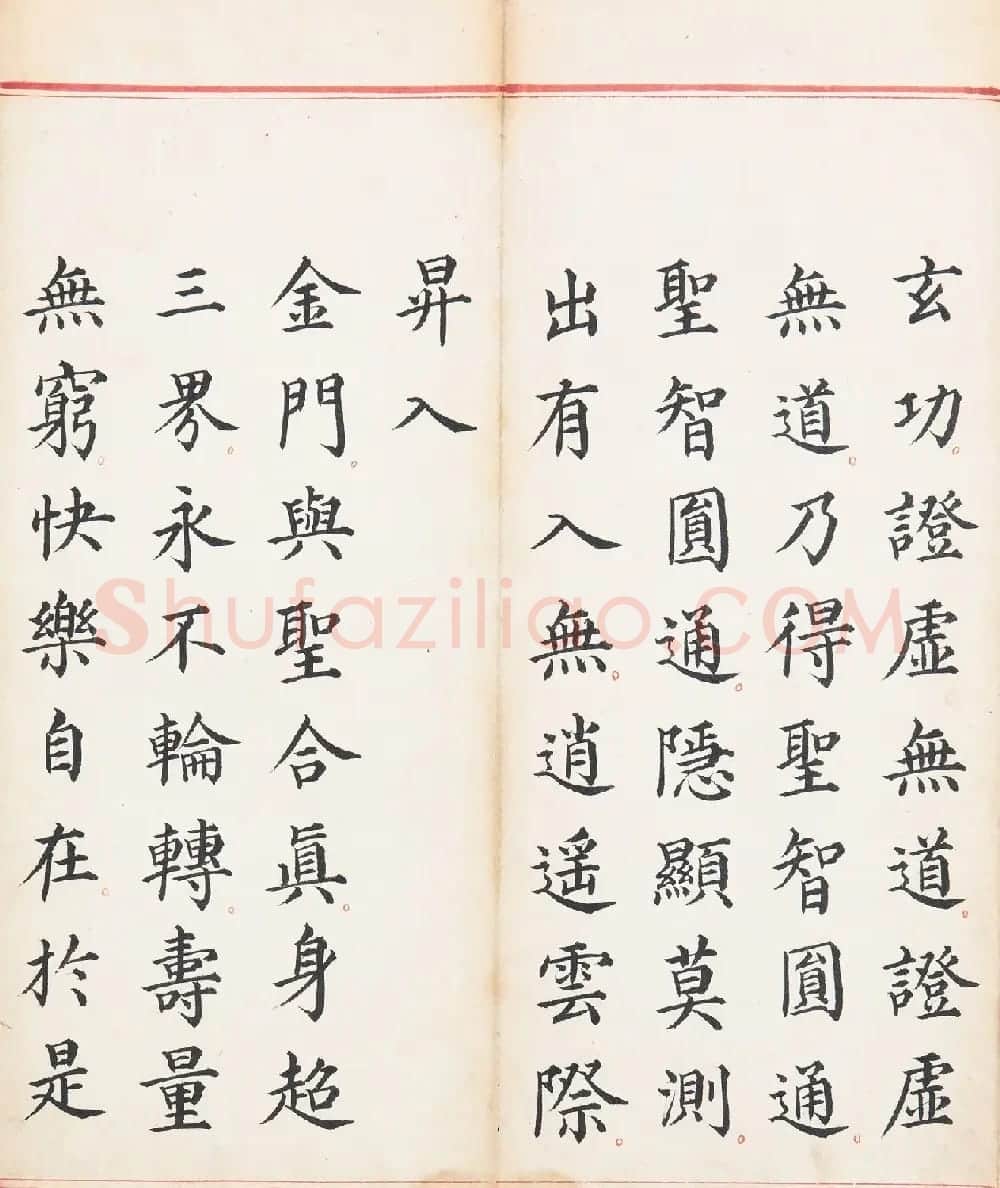 玄功。證虛無道。證虛
無道。乃得聖智圓通。
聖智圓通。隱顯莫測。
出有入無。逍遥雲際。
昇入
金門。與聖合眞。身超
三界。永不輪轉。壽量
無窮。快樂自在。於是
Shufaziliao.COM